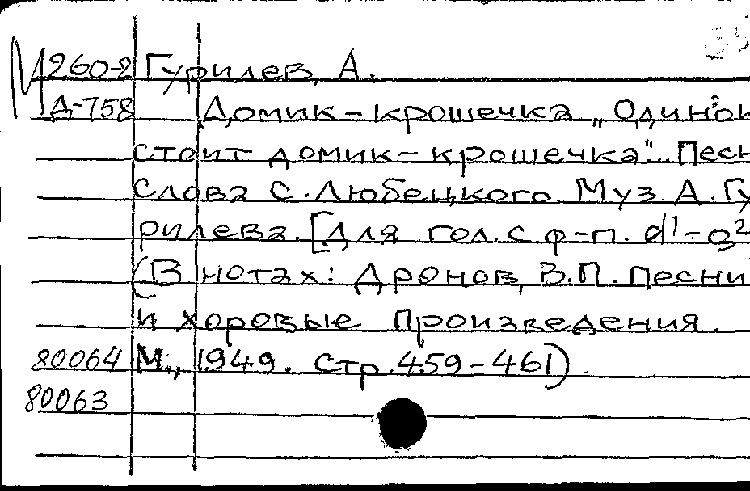 М 260-2 Гурилев, А.
Д-758 Домик-крошечка „Одинок
стоит домик-крошечка“. Песн
Слова С. Любецкого. Муз А. Гу
рилева. [Для гол. с ф-п. d¹-g²
(В нотах: Дронов, В.П. Песни
и хоровые произведения.
80064 М., 1949. Стр. 459-461)
80063